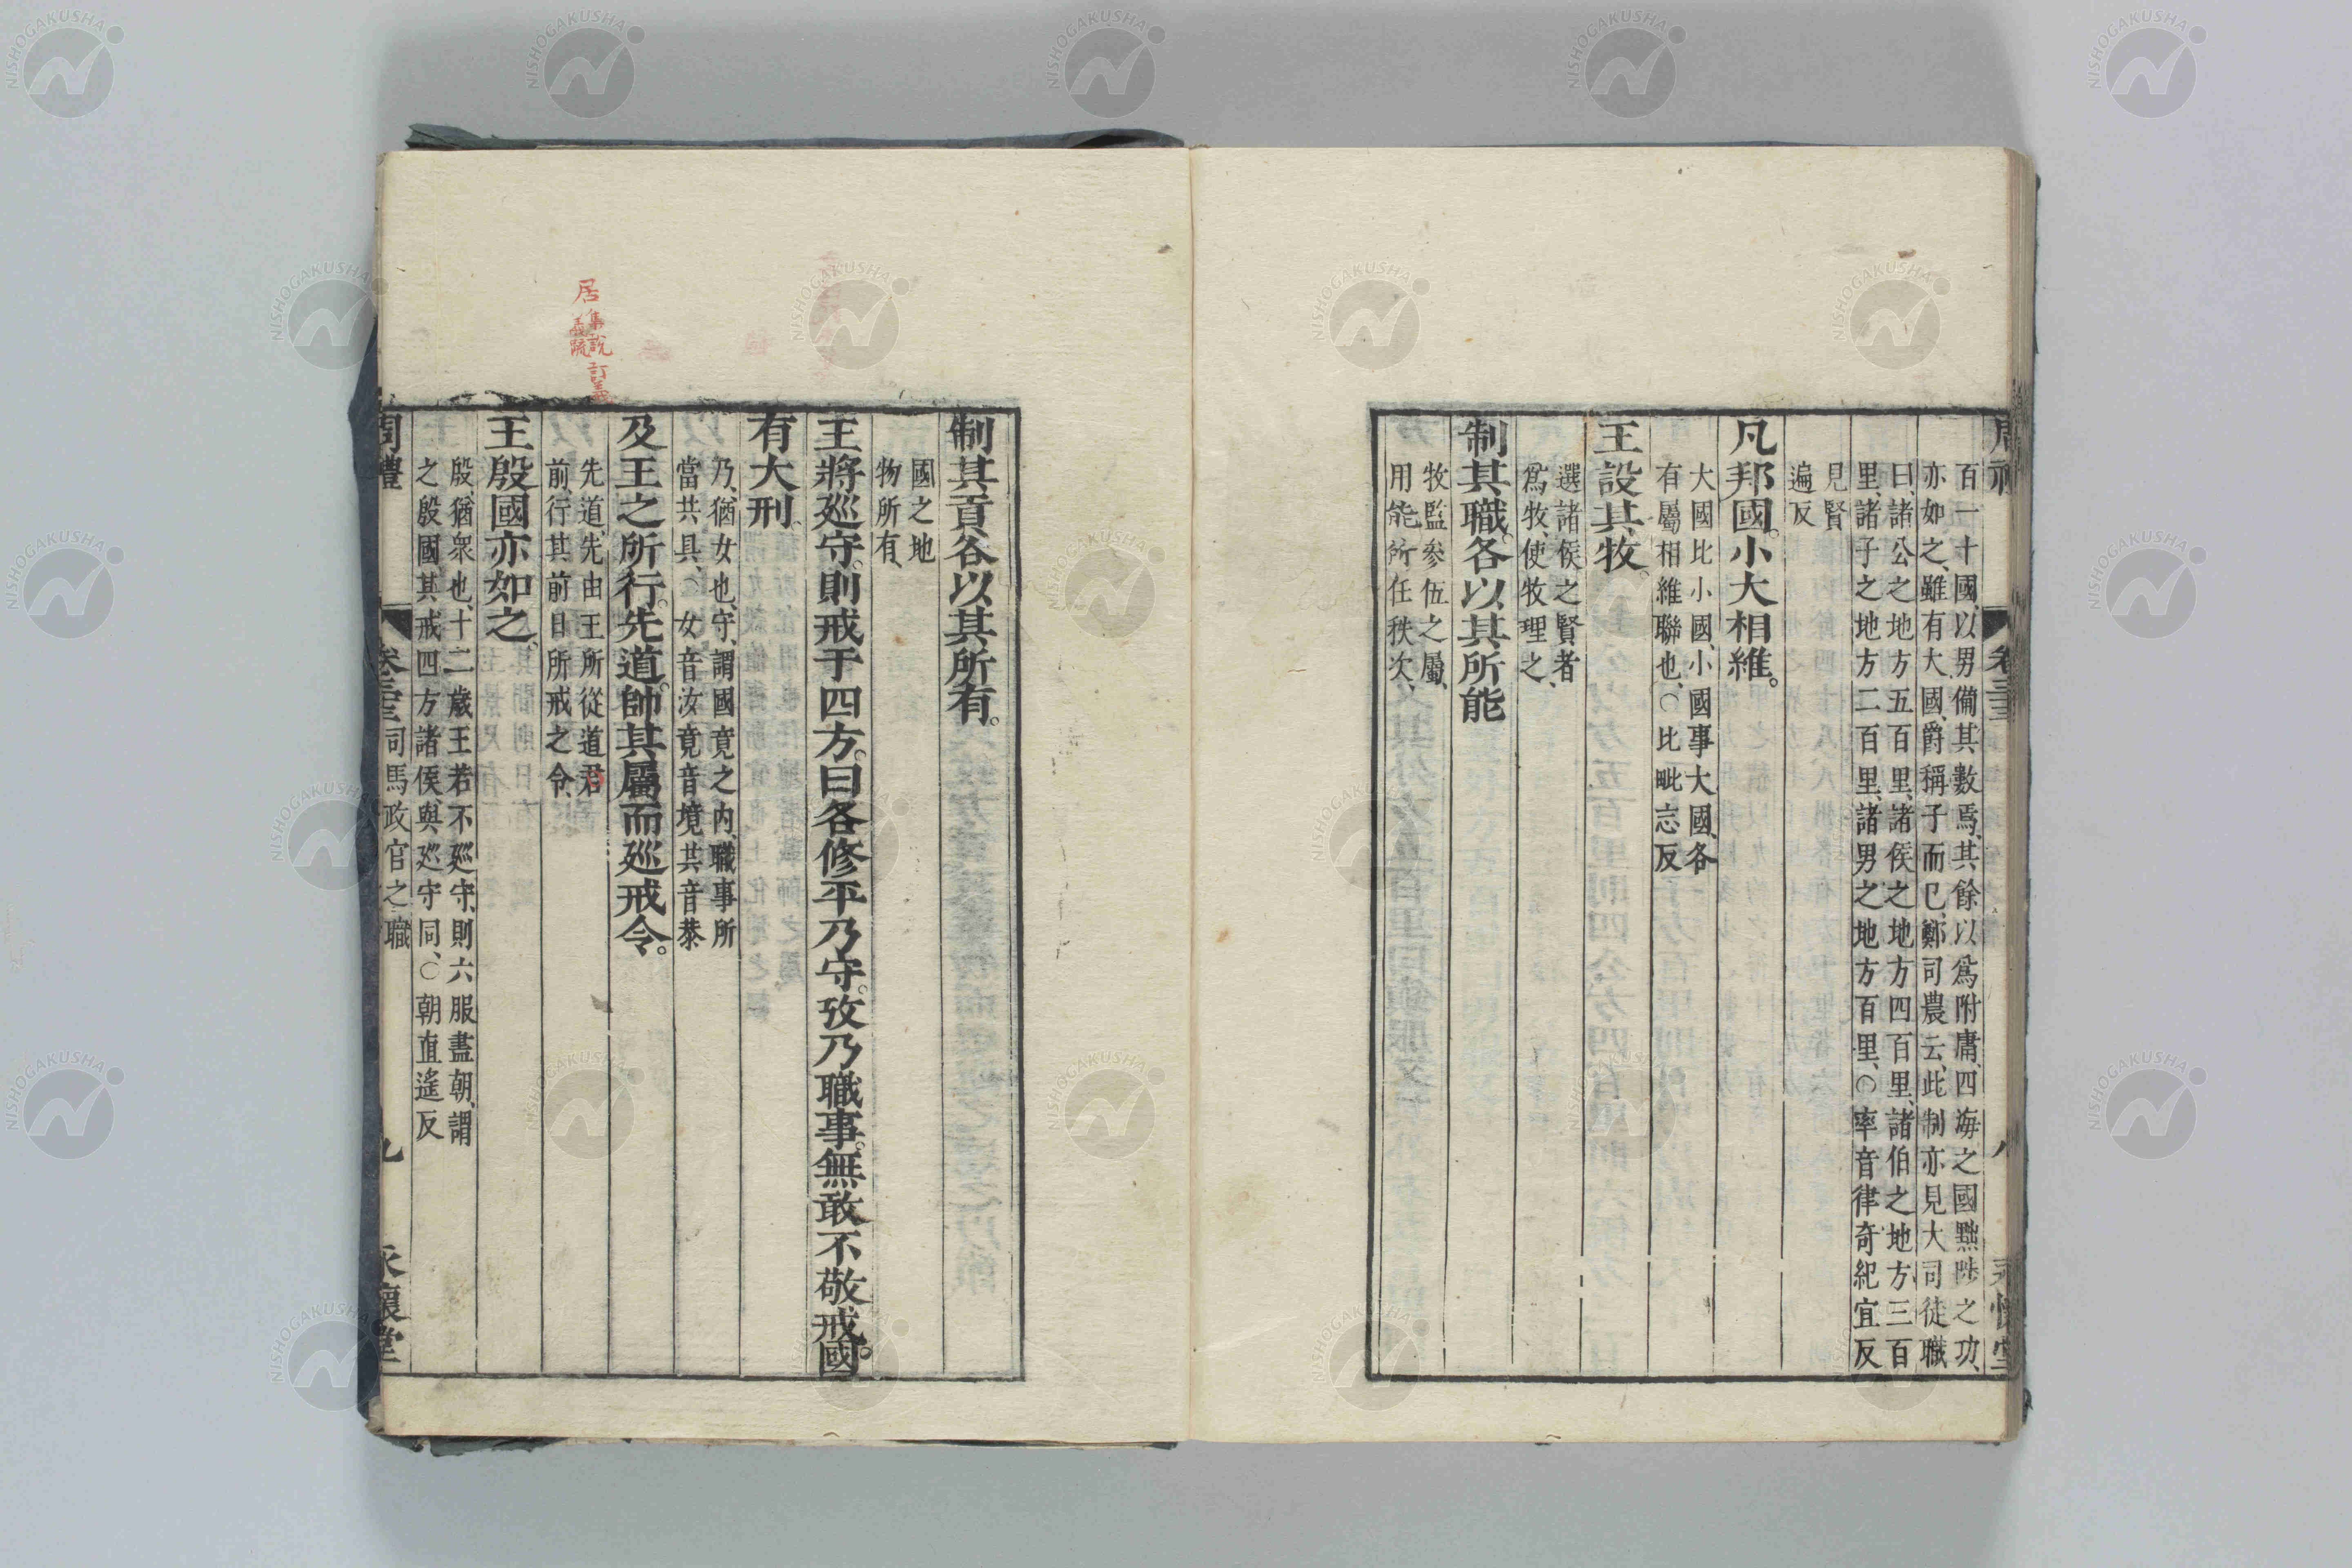 周禮 卷三十三 八 永懷堂
百一十國、以男備其數焉、其餘以爲附庸、四海之國黜陟之功、
亦如之、雖有大國、爵稱子而已、鄭司農云、此制亦見大司徒職
曰、諸公之地方五百里、諸侯之地方四百里、諸伯之地方三百
里、諸子之地方二百里、諸男之地方百里、○率音律奇紀宜反
見賢
遍反
凡邦國。小大相維。
大國比小國、小國事大國、各
有屬相維聯也、○比毗志反
王設其牧。
選諸侯之賢者
爲牧、使牧理之、
制其職。各以其所能
牧監參伍之屬、
用能所任秩次、
制其貢各以其所有。
國之地
物所有、
王將廵守。則戒于四方。曰各修平乃守。攷乃職事。無敢不敬戒。國
有大刑。
乃、猶女也、守、謂國竟之内、職事所
當共具、○女音汝竟音境共音恭
及王之所行。先道。帥其屬而廵戒令。
先道、先由王所從道君
前、行其前日所戒之令、
居 集說 訂義
義疏
王殷國亦如之。
殷、猶衆也、十二歲王若不廵守、則六服盡朝、謂
之殷國、其戒四方諸侯、與廵守同、○朝直遥反
周禮 卷三十三 司馬政官之職 九 永懷堂
NISHOGAKUSHA